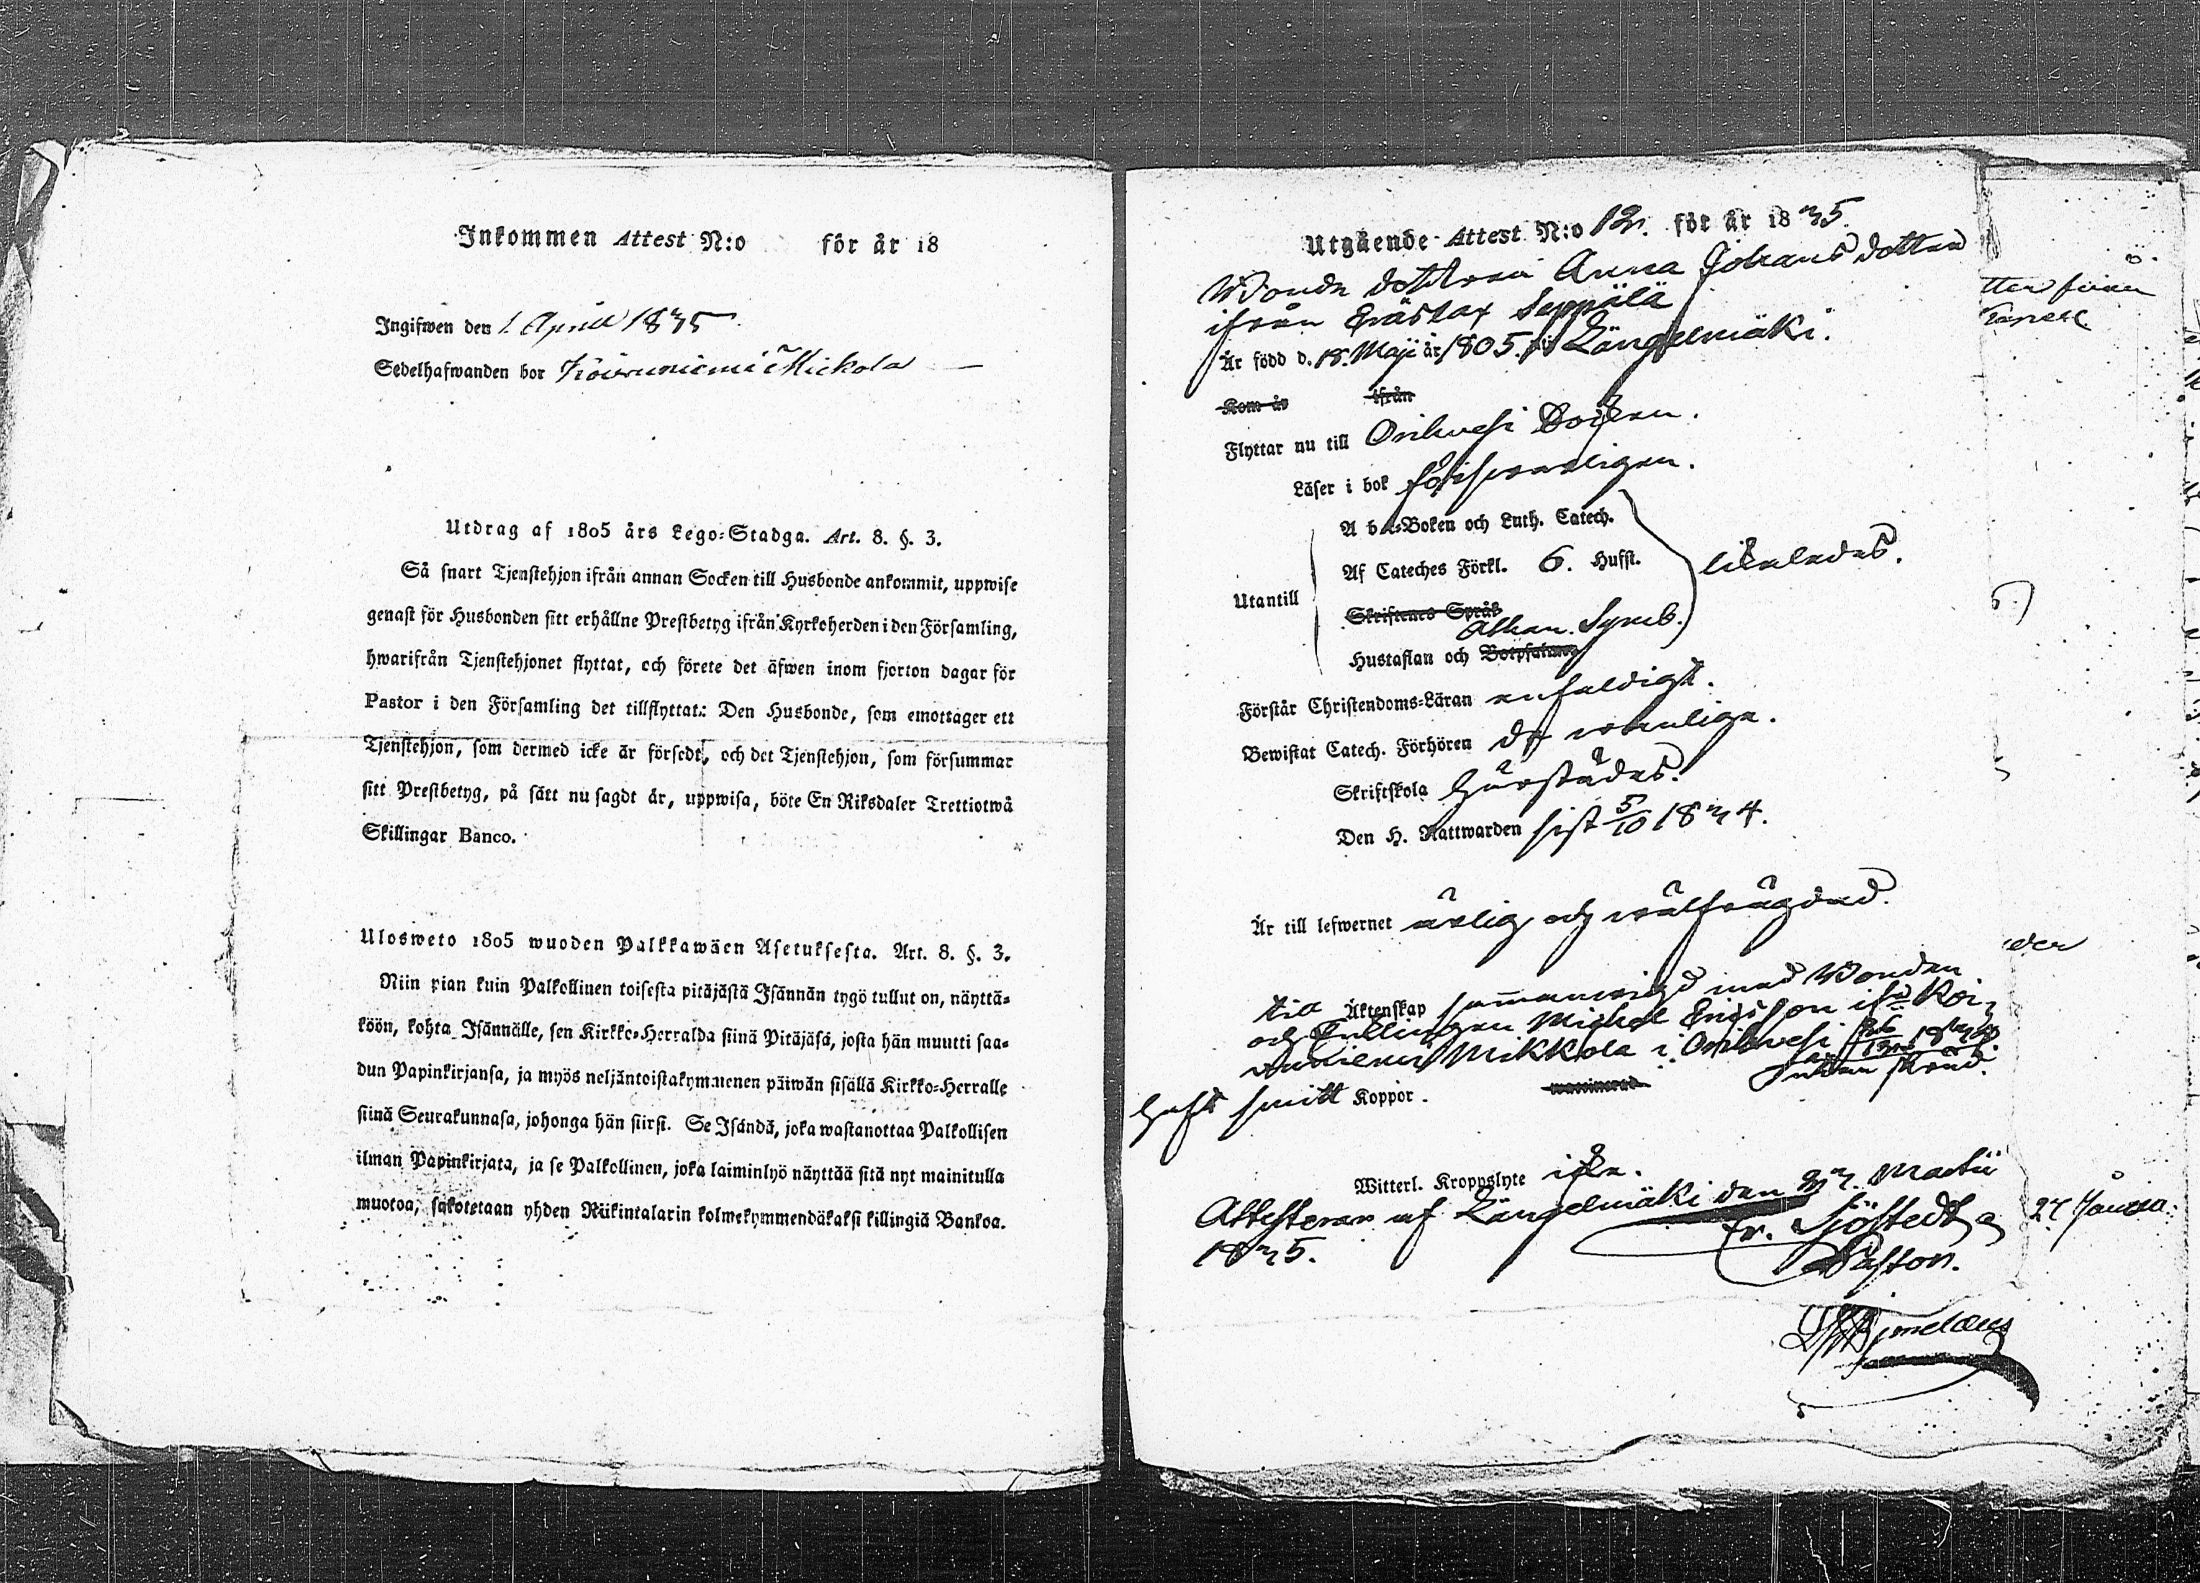 Inkommen Attest N:o för år 18
Ingifwen den 1 April 1835
Sedelhafwanden bor Koivuniemi Mickola
Utdrag af 1805 års Lego-Stadga. Art. 8. §. 3.
Så snart Tjenstehjon ifrån annan Socken till Husbonde ankommit, uppwise
genast för Husbonden sitt erhållne Prestbetyg ifrån Kyrkoherden i den Församling,
hwarifrån Tjenstehjonet flyttat, och förete det äfwen inom fjorton dagar för
Pastor i den Församling det tillflyttat: Den Husbonde, som emottager ett
Tjenstehjon, som dermed icke är försedt, och det Tjenstehjon, som försummar
sitt Prestbetyg, på sätt nu sagdt är, uppwisa, böte En Riksdaler Trettiotwå
Skillingar Banco.
Ulosweto 1805 wuoden Palkkawäen Asetuksesta. Art. 8. §. 3.
Niin pian kuin Palkollinen toisesta pitäjästä Isännän tygö tullut on, näyttä-
köön, kohta Isännälle, sen Kirkko-Herralda siinä Pitäjäsä, josta hän muutti saa-
dun Papinkirjansa, ja myös neljäntoistakymmenen päiwän sisällä Kirkko-Herralle
siinä Seurakunnasa, johonga hän siirsi. Se Isändä, joka wastanottaa Palkollisen
ilman Papinkirjata, ja se Palkollinen, joka laiminlyö näyttää sitä nyt mainitulla
muotoa, sakotetaan yhden Riikintalarin kolmekymmendäkaksi killingiä Bankoa.
Utgående Attest N:o 12. för år 1835.
Bonde dottren Anna Johans dotter
ifrån Eräslax Seppälä
Är född d. 18. Maji år 1805. i Längelmäki.
Kom år ifrån
Flyttar nu till Orihvesi Socken.
Läser i bok försvarligen.
A b c-Boken och Luth. Catech.
Af Cateches Förkl. 6. Hufst. likaledes.
Utantill
Skriftenes Språk
Athan. Symb.
Hustaflan och Botpsalmen
Förstår Christendoms-Läran enfaldigt.
Bewistat Catech. Förhören de vanliga.
Skriftskola härstädes.
Den H. Nattwarden sist 5/10 1834.
Är till lefwernet ärlig och wälfrägdad.
till Äktenskap sammanvigd med Bonden
och Enklingen Michel Ericsson ifrån Koi-
vuniemi Mikkola i Orihvesi
Haft smitt Koppor. vaccinerad
Witterl. Kroppslyte icke.
Attesterar af Längelmäki den Martii
1835. Er. Sjöstedt
Pastor.
27 Janua: